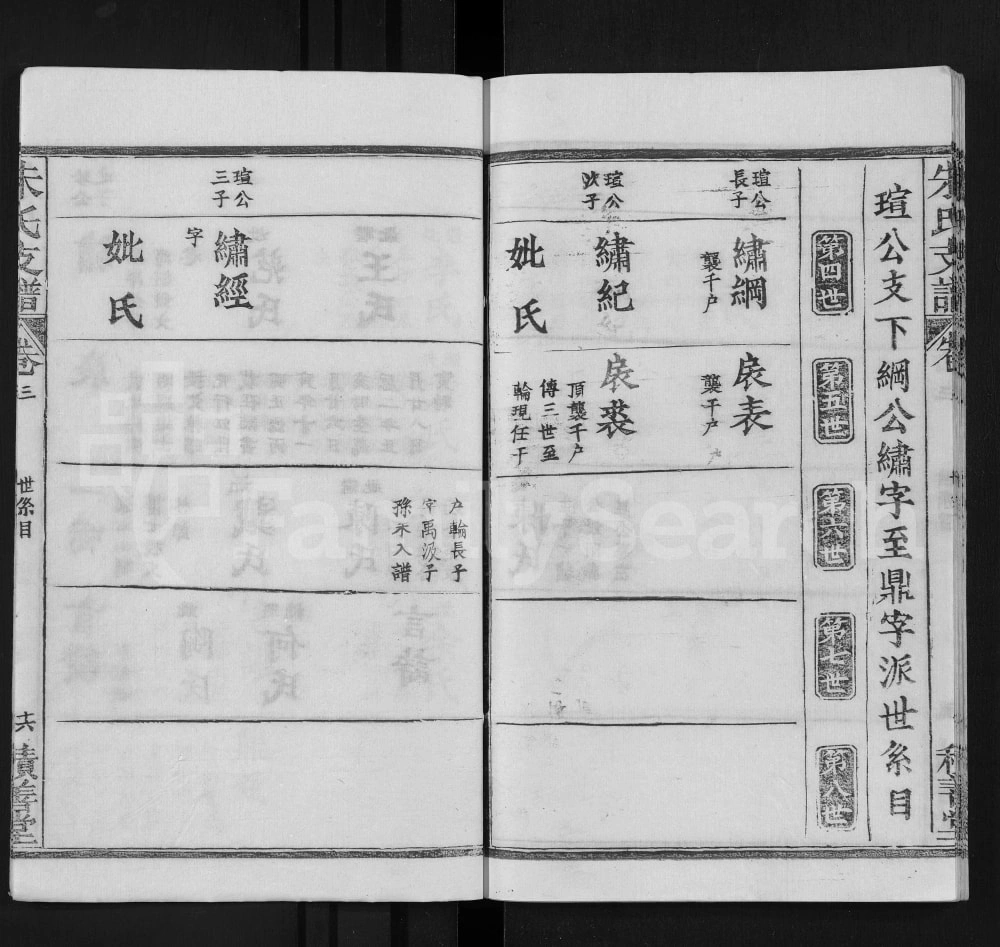 瑄公支下綱公繡字至鼎字派世系目
第四世
第五世
第六世
第七世
第八世
瑄公
長子
繡綱
襲千户
扆表
襲千户
瑄公
次子
繡紀
妣氏
扆裘
頂襲千户
傳三世至
輪現任于
户輪長子
字禹汲子
孫未入譜
瑄公
三子
繡經
字
妣氏
朱氏支譜
卷三
世系目
十六
積善堂